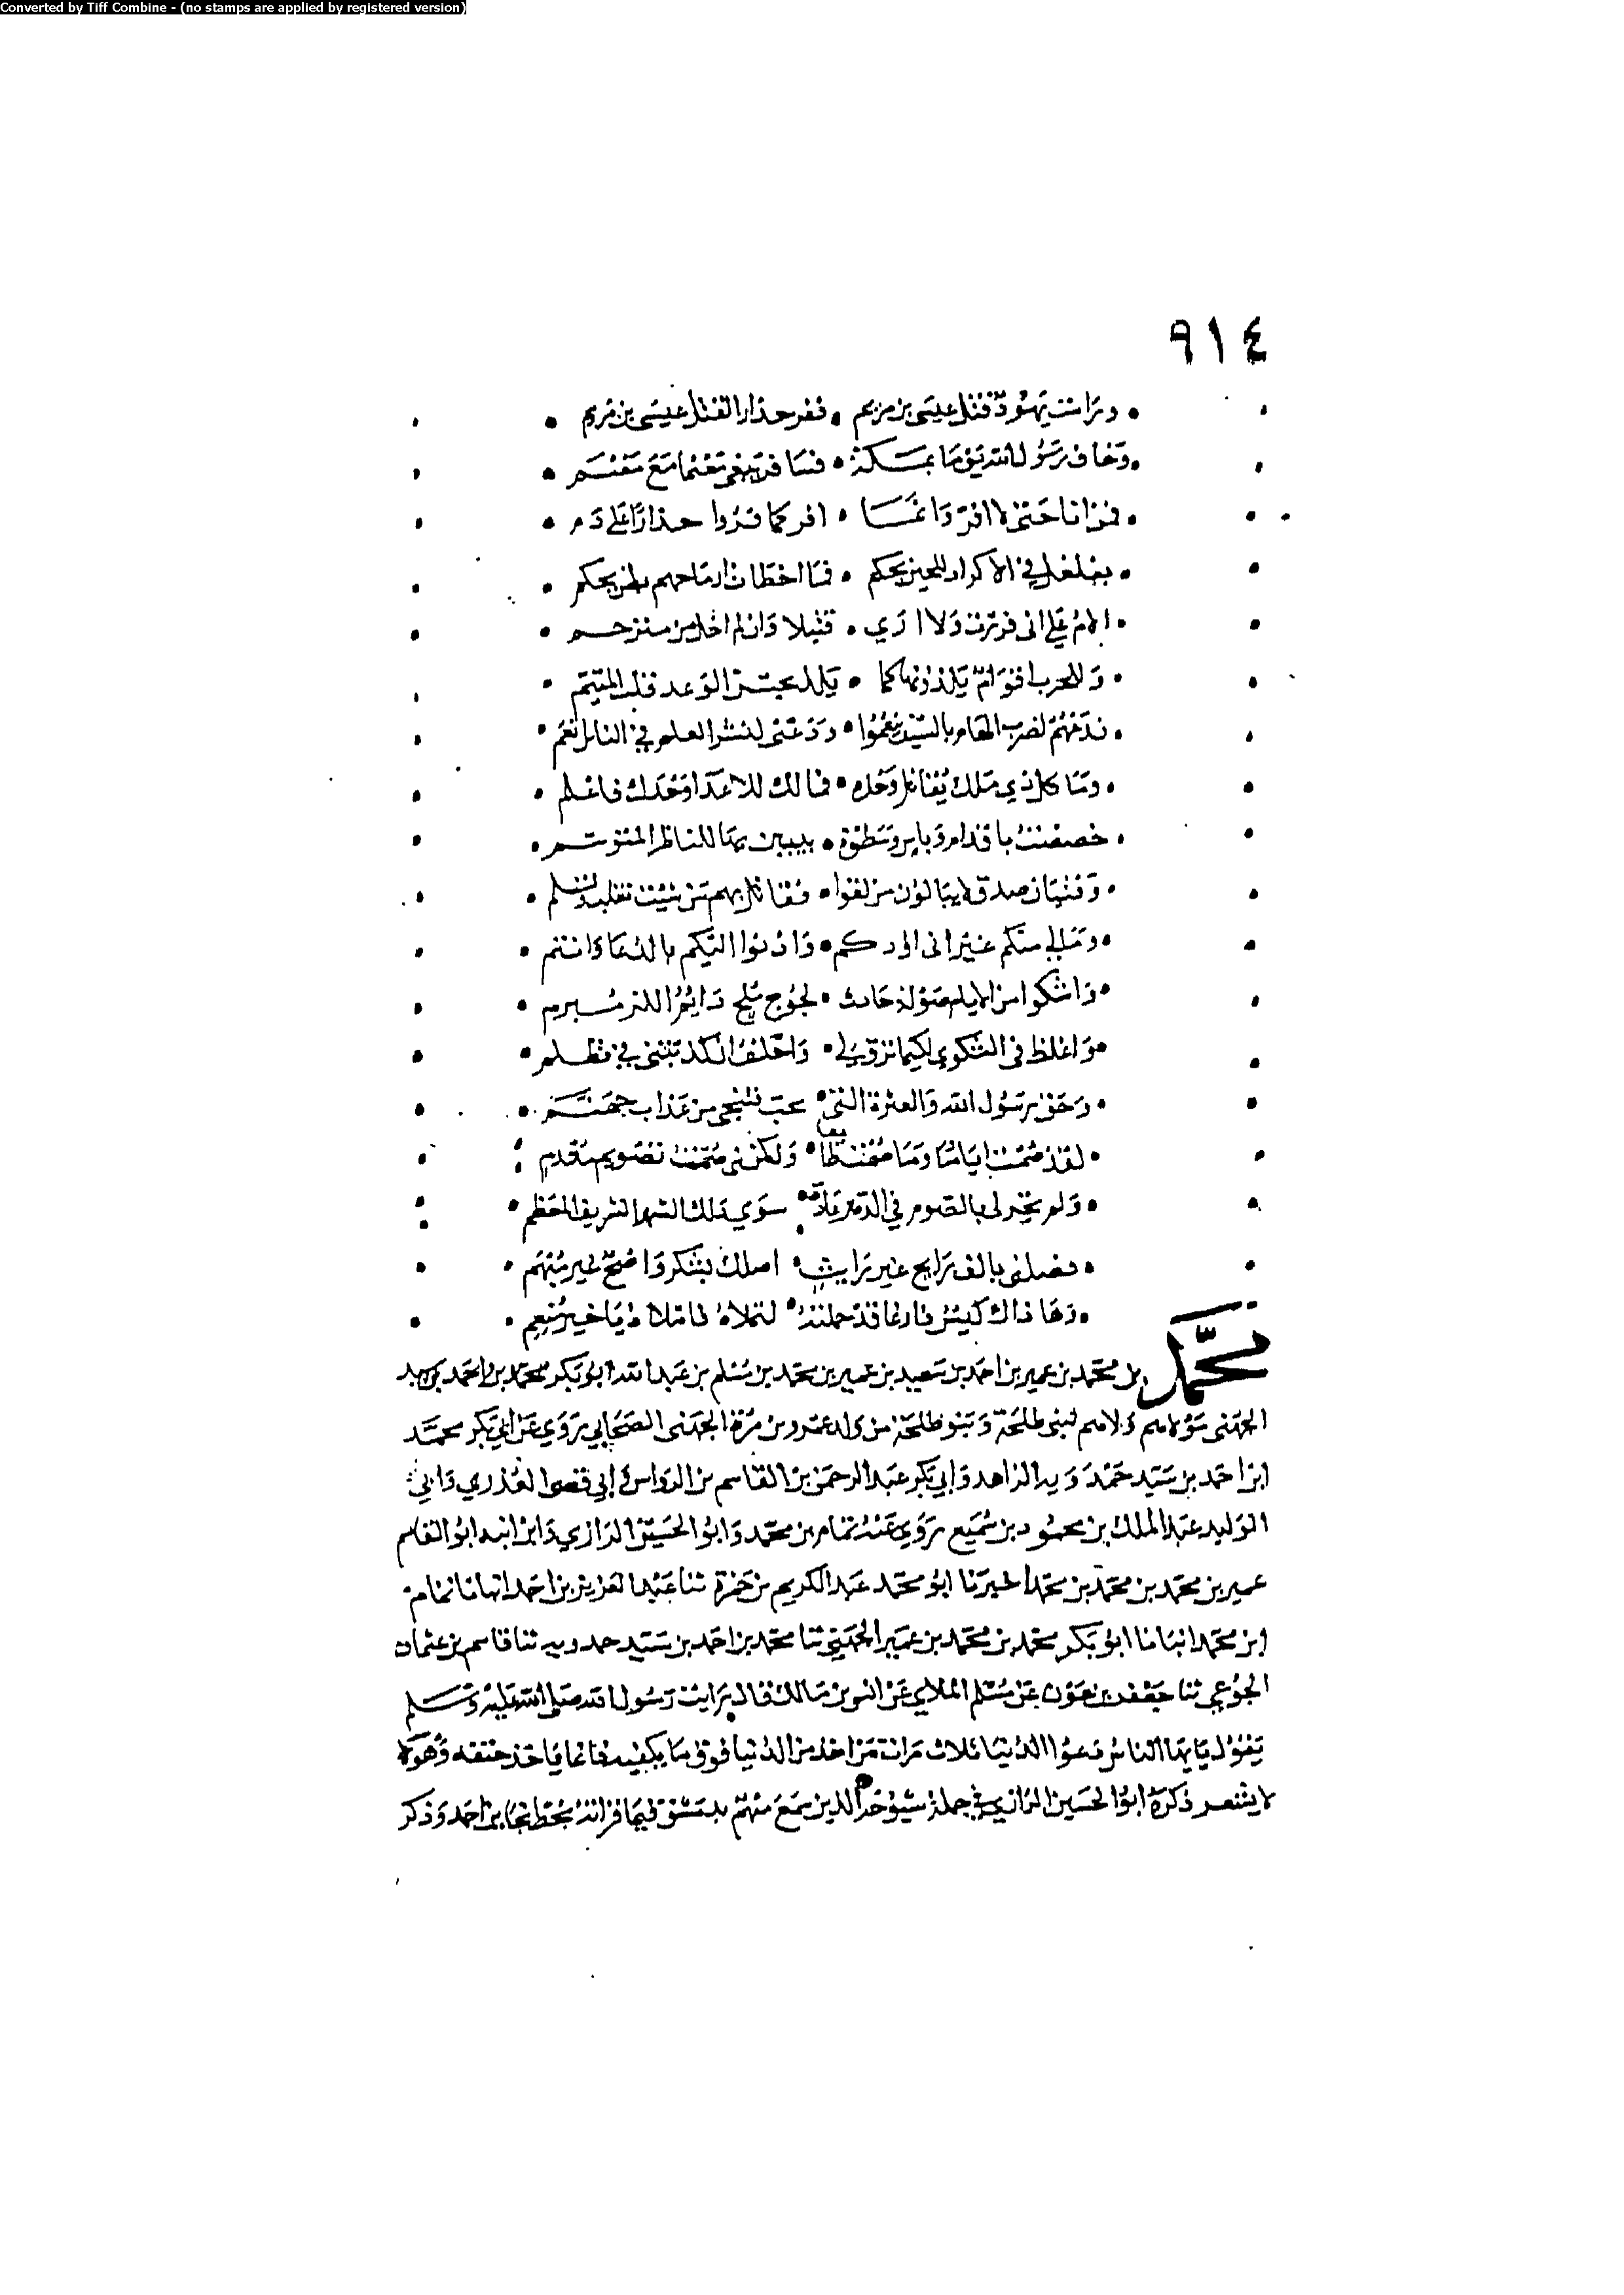 Converted by Tiff Combine - (no stamps are applied by registered version)
٩١٤
ورامت يهود قتل عيسى بن مريم • ففر حذار القتل عيسى بن مريم
وخاف رسول الله يوما بمكة • فسافر يبغي مغنما مع مغنم
فمن انا حتى لا افر وانما • افر كما فروا حذارا على دم
فما اخطات ارماحهم
الام على اني فررت ولا ارى • قتيلا وان لم اخل من مترحم
وللحرب اقوام يلذونها كما • يلذ بحسن الوعد قلب المتيم
ندبتهم لضرب الهام بالسيف ينعموا • ودعني لنشر العلم في الناس نعم
وما كل ذي ملك يقاتل وحده • فمالك للاعدا وحدك فاعلم
خصصت باقدام وباس وسطوة • يبين بها للناظر المتوسم
وفتيان صدق لا يبالون من لقوا • فقاتل بهم من شئت تغلب وتسلم
ومالي منكم غير اني اودكم • وادنوا اليكم بالدعا وانتم
واشكوا من الايام صولة حادث • لجوج ملح دايم اللز مبرم
واغلظ في الشكوى لكيما ترق لي • واحلف
وحق رسول الله والعترة التي • بحب تنجي من عذاب جهنم
لقد صمت اياما وما صمتها • ولكنني صمت تصويم مقدم
ولم يجر لي بالصوم في الدهر عادة • سوى ذلك الشهر الشريف المعظم
فصلني بالف رايج غير رايث • اصلك بشكر واضح غير مبهم
وها ذاك كيس فارغا قد حملته • لتملاه فاملاه يا خير منعم
محمد بن محمد بن عمير بن احمد بن سعيد بن عمير بن محمد بن مسلم بن عبد الله ابو بكر محمد بن احمد بن سيد
الجهني مولاهم ولاهم لبني طلحة وبنو طلحة من ولد عمرو بن مرة الجهني الصحابي روى عن ابي بكر محمد
ابن احمد بن سيد حمدويه الزاهد وابي بكر عبد الرحمن بن القاسم بن الرواس وابي قصي العذري وابي
الوليد عبد الملك بن محمود بن سميع روى عنه تمام بن محمد وابو الحسين الرازي وابن ابنه ابو القاسم
عمير بن محمد بن محمد بن محمد اخبرنا ابو محمد عبد الكريم بن حمزة ثنا عبد العزيز بن احمد انبانا تمام
ابن محمد انبانا ابو بكر محمد بن محمد بن عمير الجهني ثنا محمد بن احمد بن سيد حمدويه ثنا قاسم بن عثمان
الجوعي ثنا جعفر بن عون عن مسلم الملاي عن انس بن مالك قال رايت رسول الله صلى الله عليه وسلم
يقول يايها الناس دعوا الدنيا ثلاث مرات من اخذ من الدنيا فوق ما يكفيه فانما ياخذ حتفه وهو لا
لا يشعر ذكره ابو الحسين الرازي في جملة شيوخه الذين سمع منهم بدمشق فيما قراته بخط نجا بن احمد وذكر